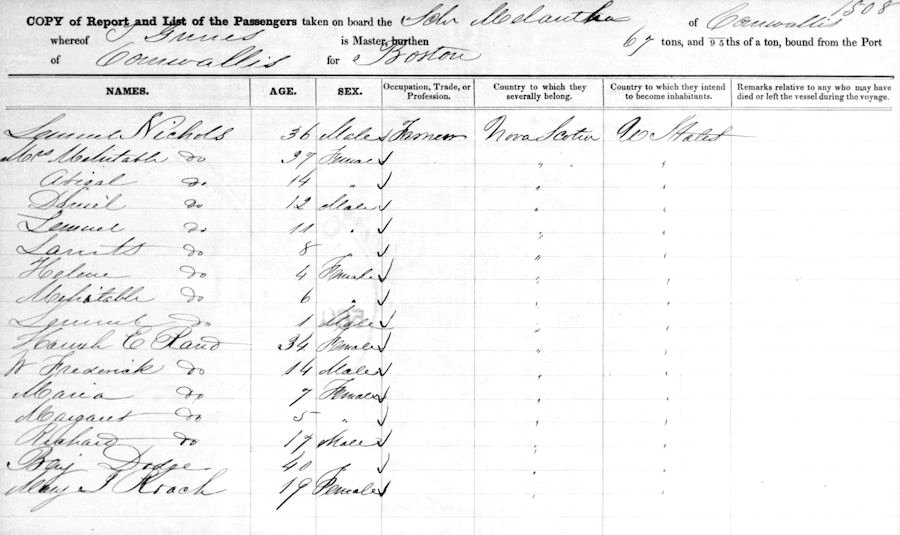 1508
COPY of Report and List of the Passengers taken on board the Schr Melantha of Cornwallis
whereof is Master, burthen 67 tons, and 95ths of a ton, bound from the Port
of Cornwallis for Boston
NAMES. AGE. SEX. Occupation, Trade, or Profession. Country to which they severally belong. Country to which they intend to become inhabitants. Remarks relative to any who may have died or left the vessel during the voyage.
Lemuel Nichols 36 Male Farmer Nova Scotia U States
Mrs Mehitable do 37 Female " "
Abigal do 14 " " "
Daniel do 12 Male " "
Lemuel do 11 " " "
do 8 " " "
Helene do 4 Female " "
Mehitable do 6 " " "
Lemuel do 1 Male " "
Hannah E Rand 34 Female " "
W Frederick do 14 Male " "
Maria do 7 Female " "
Margaret do 5 " " "
Richard do 17 Male " "
Benj Dodge 40 " "
Mary J Roach 19 Female " "